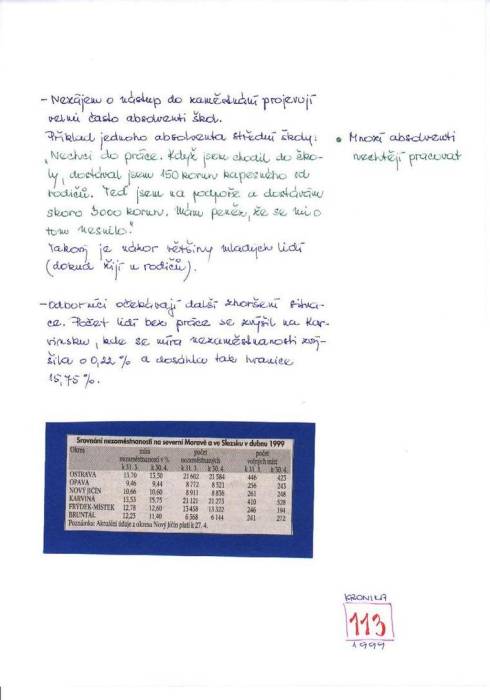 - Nezájem o nástup do zaměstnání projevují
velmi často absolventi škol.
Příklad jednoho absolventa střední školy:
„Nechci do práce. Když jsem chodil do ško-
ly, dostával jsem 150 korun kapesného od
rodičů. Teď jsem na podpoře a dostávám
skoro 3000 korun. Mám peněz, že se mi o
tom nesnilo."
Takový je názor většiny mladých lidí
(dokud žijí u rodičů).
• Mnozí absolventi
nechtějí pracovat
- Odborníci očekávají další zhoršení situa-
ce. Počet lidí bez práce se zvýšil na Kar-
vinsku, kde se míra nezaměstnanosti zvý-
šila o 0,22 % a dosáhla tak hranice
15,75 %.
Srovnání nezaměstnanosti na severní Moravě a ve Slezsku v dubnu 1999
Okres míra počet počet
nezaměstnanosti v % nezaměstnaných volných míst
k 31. 3. k 30. 4. k 31. 3. k 30. 4. k 31. 3. k 30. 4.
OSTRAVA 13,70 13,50 21 602 21 584 446 423
OPAVA 9,46 9,44 8 772 8 521 256 243
NOVÝ JIČÍN 10,66 10,60 8 911 8 836 261 248
KARVINÁ 15,53 15,75 21 121 21 273 410 528
FRÝDEK-MÍSTEK 12,78 12,60 13 458 13 322 246 194
BRUNTÁL 12,23 11,40 6 568 6 144 241 272
Poznámka: Aktuální údaje z okresu Nový Jičín platí k 27. 4.
KRONIKA
113
1999